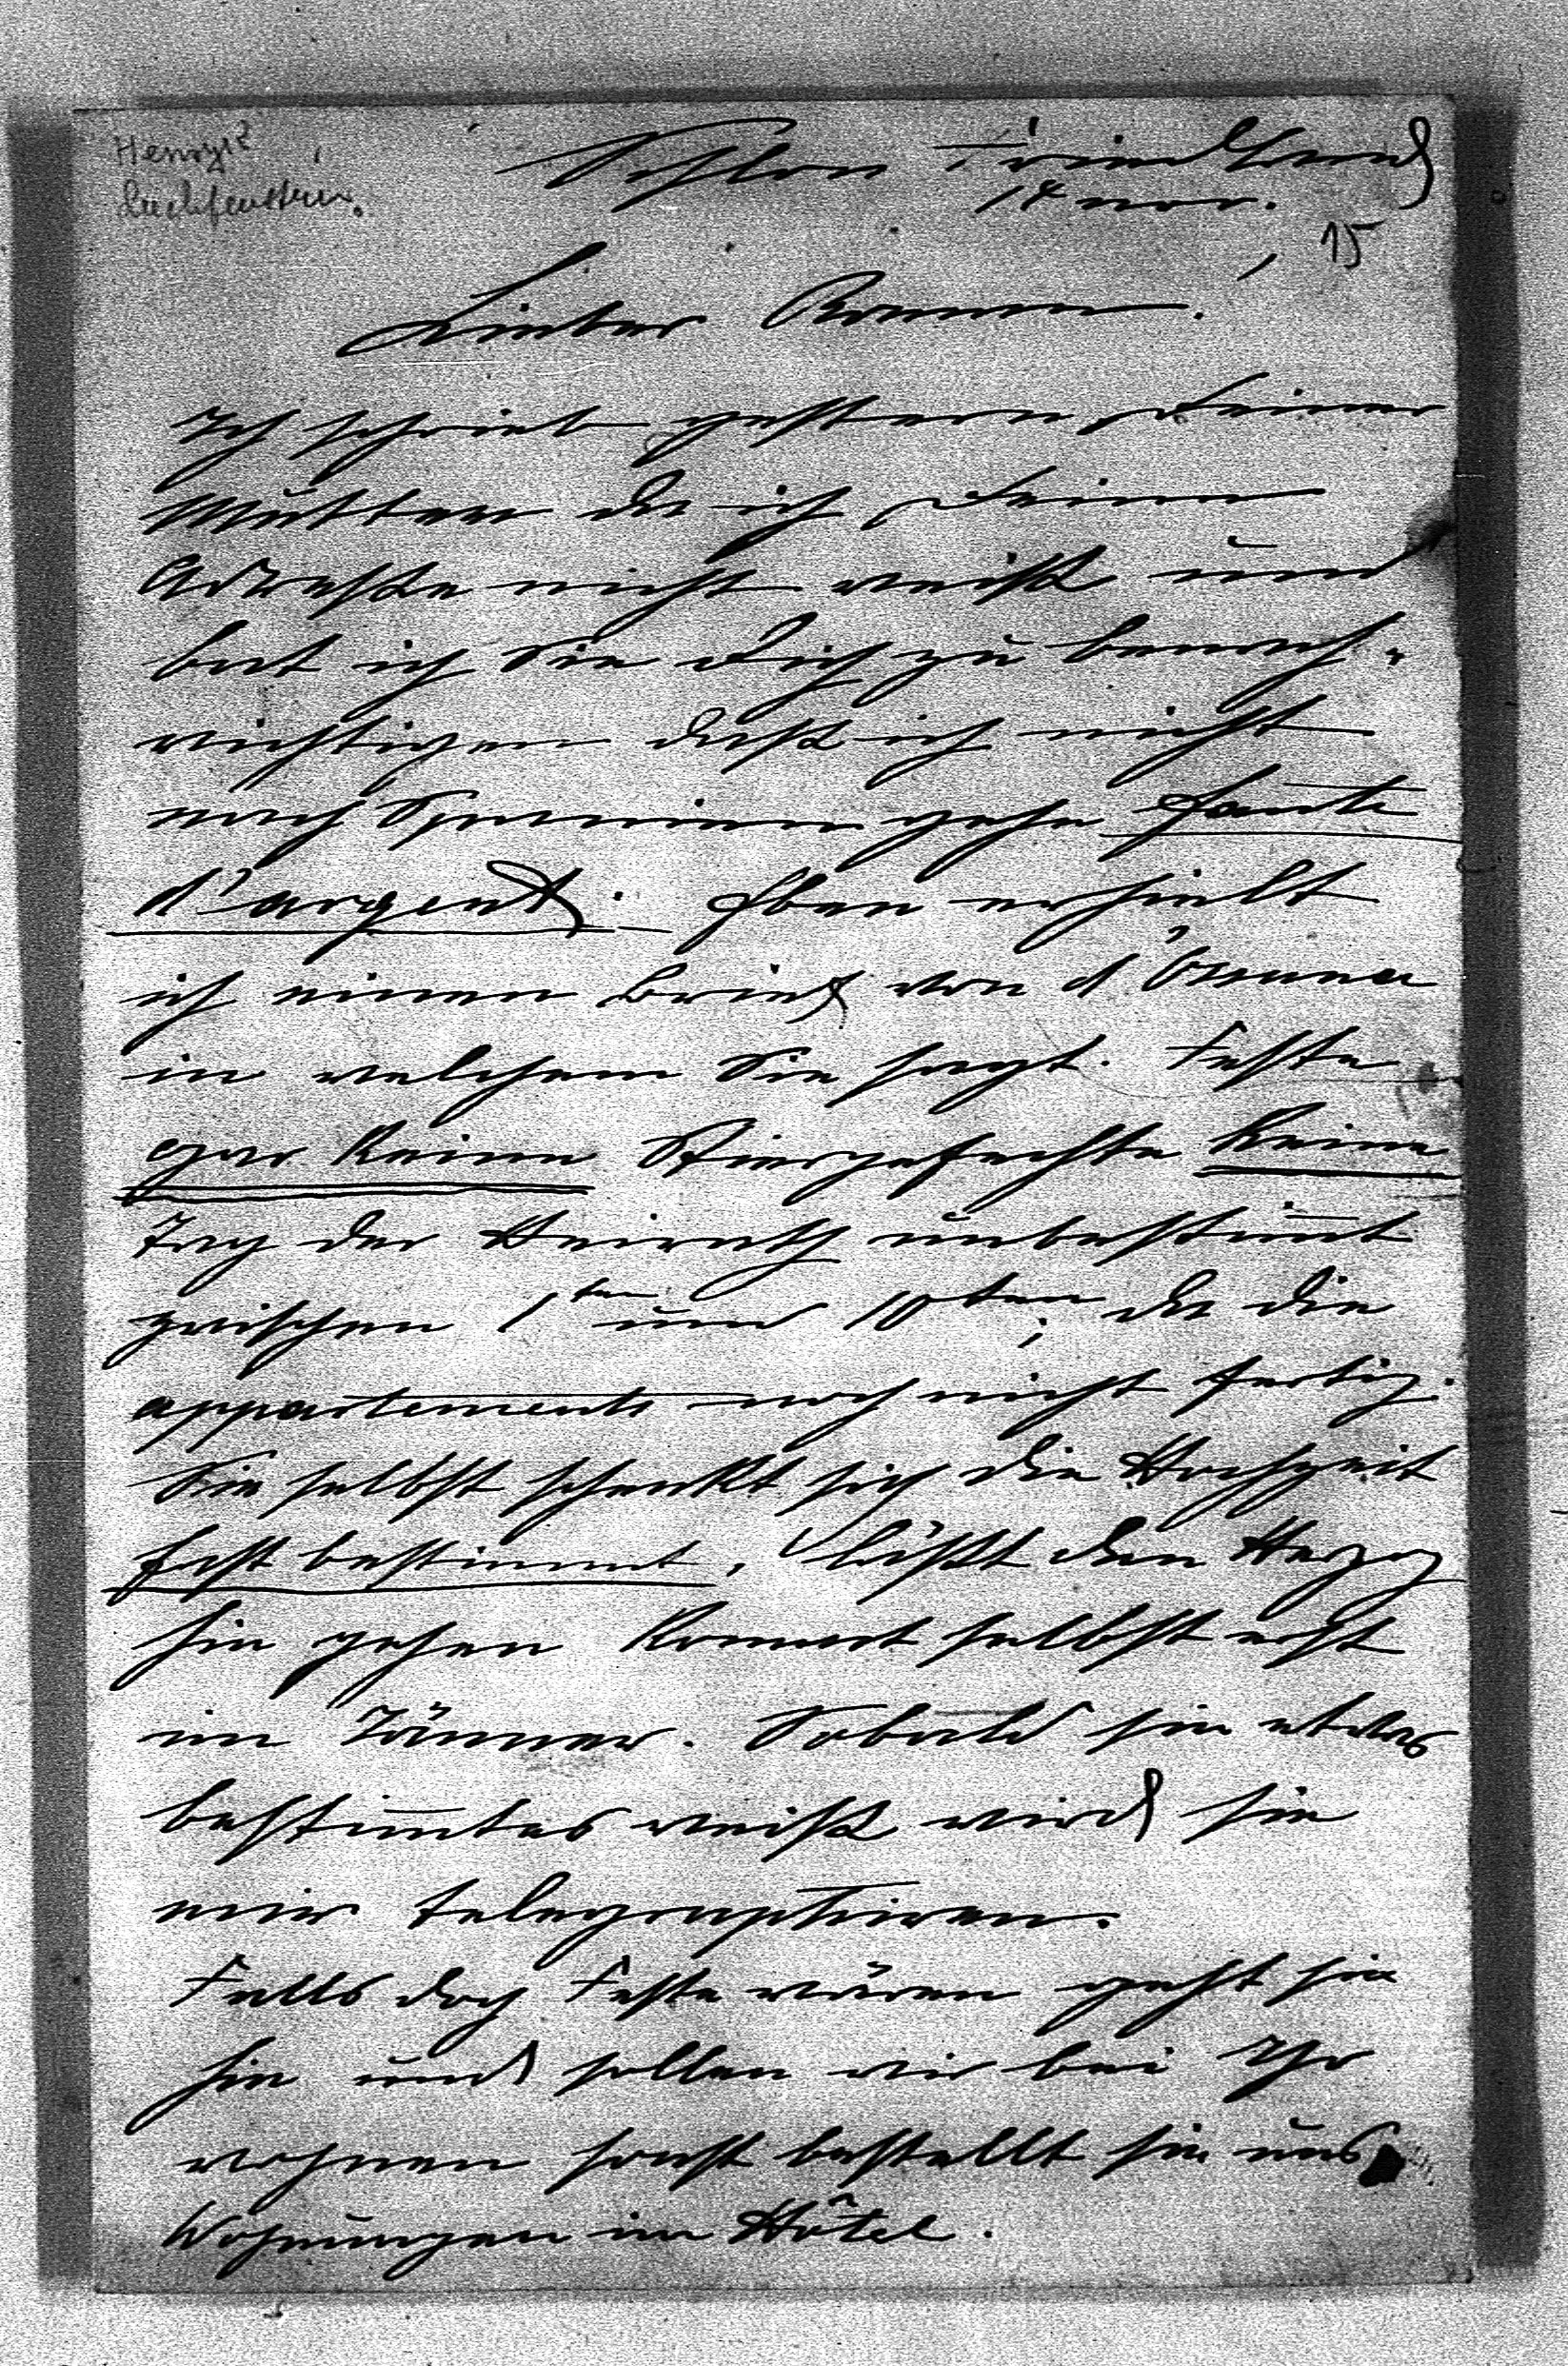 Henryk
Liechtenstein.
Schloss Friedland
14 nov.
15
Lieber Roman.
Ich schrieb gestern Deiner
Mutter da ich Deine
Adresse nicht weiß und
bat ich Sie Dich zu benach-
richtigen daß ich nicht
nach Spanien gehe faute
d'argent. Eben erhielt
ich einen Brief von d'Ossuna
in welchem Sie sagt. Feste
gar keine Stiergefechte keine
Tag der Heirath unbestim̅t
zwischen 1ten und 10ten; da die
appartements noch nicht fertig.
Sie selbst schenkt sich die Hochzeit
fest bestimmt, läßt den Herzog
hin gehen kommt selbst erst
im Jänner. Sobald sie etwas
bestim̅tes weiß wird sie
mir telegraphiren.
Falls doch Feste wären geht sie
hin und sollen wir bei Ihr
wohnen sonst bestellt sie uns
Wohnungen im Hôtel.